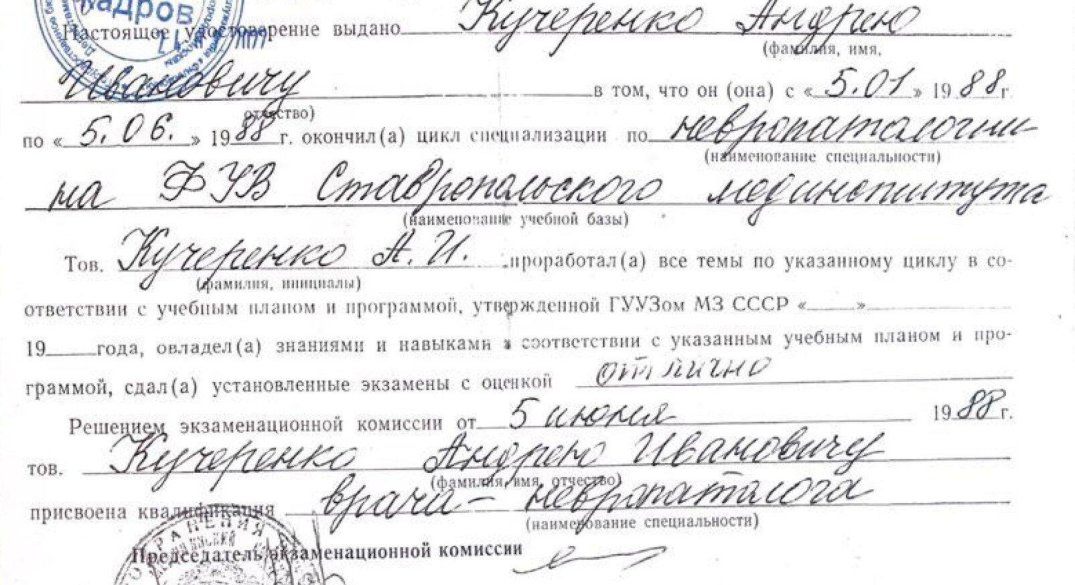 Кадров
Настоящее удостоверение выдано Кучеренко Андрею
(фамилия, имя,
Ивановичу в том, что он (она) с «5.01» 1988г
отчество)
по «5.06.» 1988г. окончил(а) цикл специализации по невропатологии
(наименование специальности)
на ФУВ Ставропольского мединститута
(наименование учебной базы)
Тов. Кучеренко А.И. проработал(а) все темы по указанному циклу в со-
(фамилия, инициалы)
ответствии с учебным планом и программой, утвержденной ГУУЗом МЗ СССР «____»
19____года, овладел(а) знаниями и навыками в соответствии с указанным учебным планом и про-
граммой, сдал(а) установленные экзамены с оценкой отлично
Решением экзаменационной комиссии от 5 июня 1988г.
тов. Кучеренко Андрею Ивановичу
(фамилия, имя, отчество)
присвоена квалификация врача-невропатолога
(наименование специальности)
Председатель экзаменационной комиссии